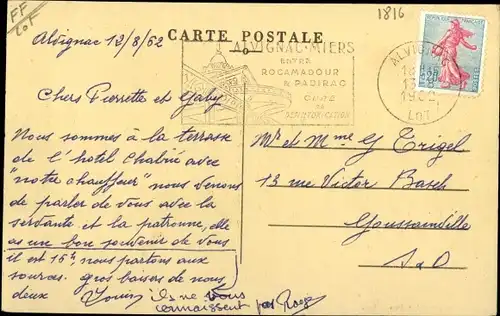 FF
LOT
1816
CARTE POSTALE
Alvignac 12/8/62
ALVIGNAC-MIERS
ENTRE
ROCAMADOUR
& PADIRAC
CURE
DE
DÉSINTOXICATION
ALVIGNAC
LOT
Chers Pierrette et Gaby
Nous sommes à la terrasse
de l'hôtel Chabrié avec
"notre chauffeur" nous venons
de parler de vous avec la
servante et la patronne, elle
as une bon souvenir de vous
il est 15h, nous partons aux
sources. gros baisers de nous
deux
ils ne vous
connaissent pas
Mr et Mme G Trigel
13 rue Victor Basch
Goussainville
S & O